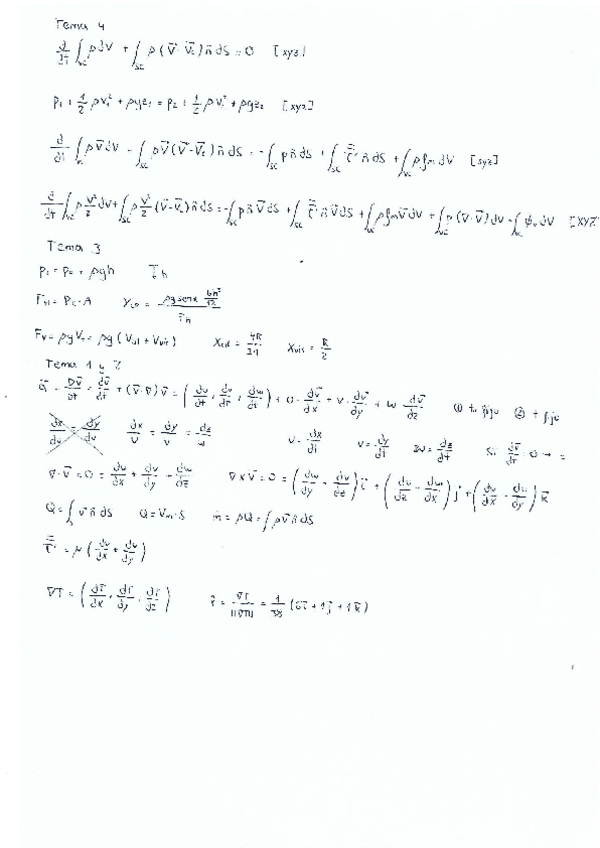 Tema 4
d/dt ∫_VC ρ dV + ∫_SC ρ (V⃗ - V⃗c) n⃗ dS = 0 [xyz]
P₁ + 1/2 ρ V₁² + ρg z₁ = P₂ + 1/2 ρ V₂² + ρg z₂ [xyz]
d/dt ∫_VC ρ V⃗ dV - ∫_SC ρ V⃗ (V⃗ - V⃗c) n⃗ dS = - ∫_SC p n⃗ dS + ∫_SC τ' n⃗ dS + ∫_VC ρ fm dV [xyz]
d/dt ∫_VC ρ V²/2 dV + ∫_SC ρ V²/2 (V⃗ - V⃗c) n⃗ dS = - ∫_SC p n⃗ V⃗ dS + ∫_SC τ' n⃗ V⃗ dS + ∫_VC ρ fm V⃗ dV + ∫_VC p (∇·V⃗) dV - ∫_VC ϕv dV [XYZ]
Tema 3
P₁ = P₂ + ρgh ↧h
F_H = P_c · A
Fv = ρg V = ρg (
Tema 1 y 2
a⃗ = Dv⃗/Dt = dv⃗/dt + (v⃗·∇) v⃗ = ( du/dt , dv/dt , dw/dt ) + u · dv⃗/dx + v · dv⃗/dy + w · dv⃗/dz
dx/u = dy/v = dz/w u = dx/dt v = dy/dt w = dz/dt Si dv⃗/dt = 0 → =
∇·v⃗ = 0 = du/dx + dv/dy + dw/dz ∇×v⃗ = 0 = ( dw/dy - dv/dz ) i⃗ + ( du/dz - dw/dx ) j⃗ + ( dv/dx - du/dy ) k⃗
Q = ∫ v⃗ n⃗ dS Q = Vm · S ṁ = ρQ = ∫ ρ v⃗ n⃗ dS
τ' = μ ( dv/dx + du/dy )
∇T = ( dT/dx , dT/dy , dT/dz ) = ∇T/||∇T|| = 1/